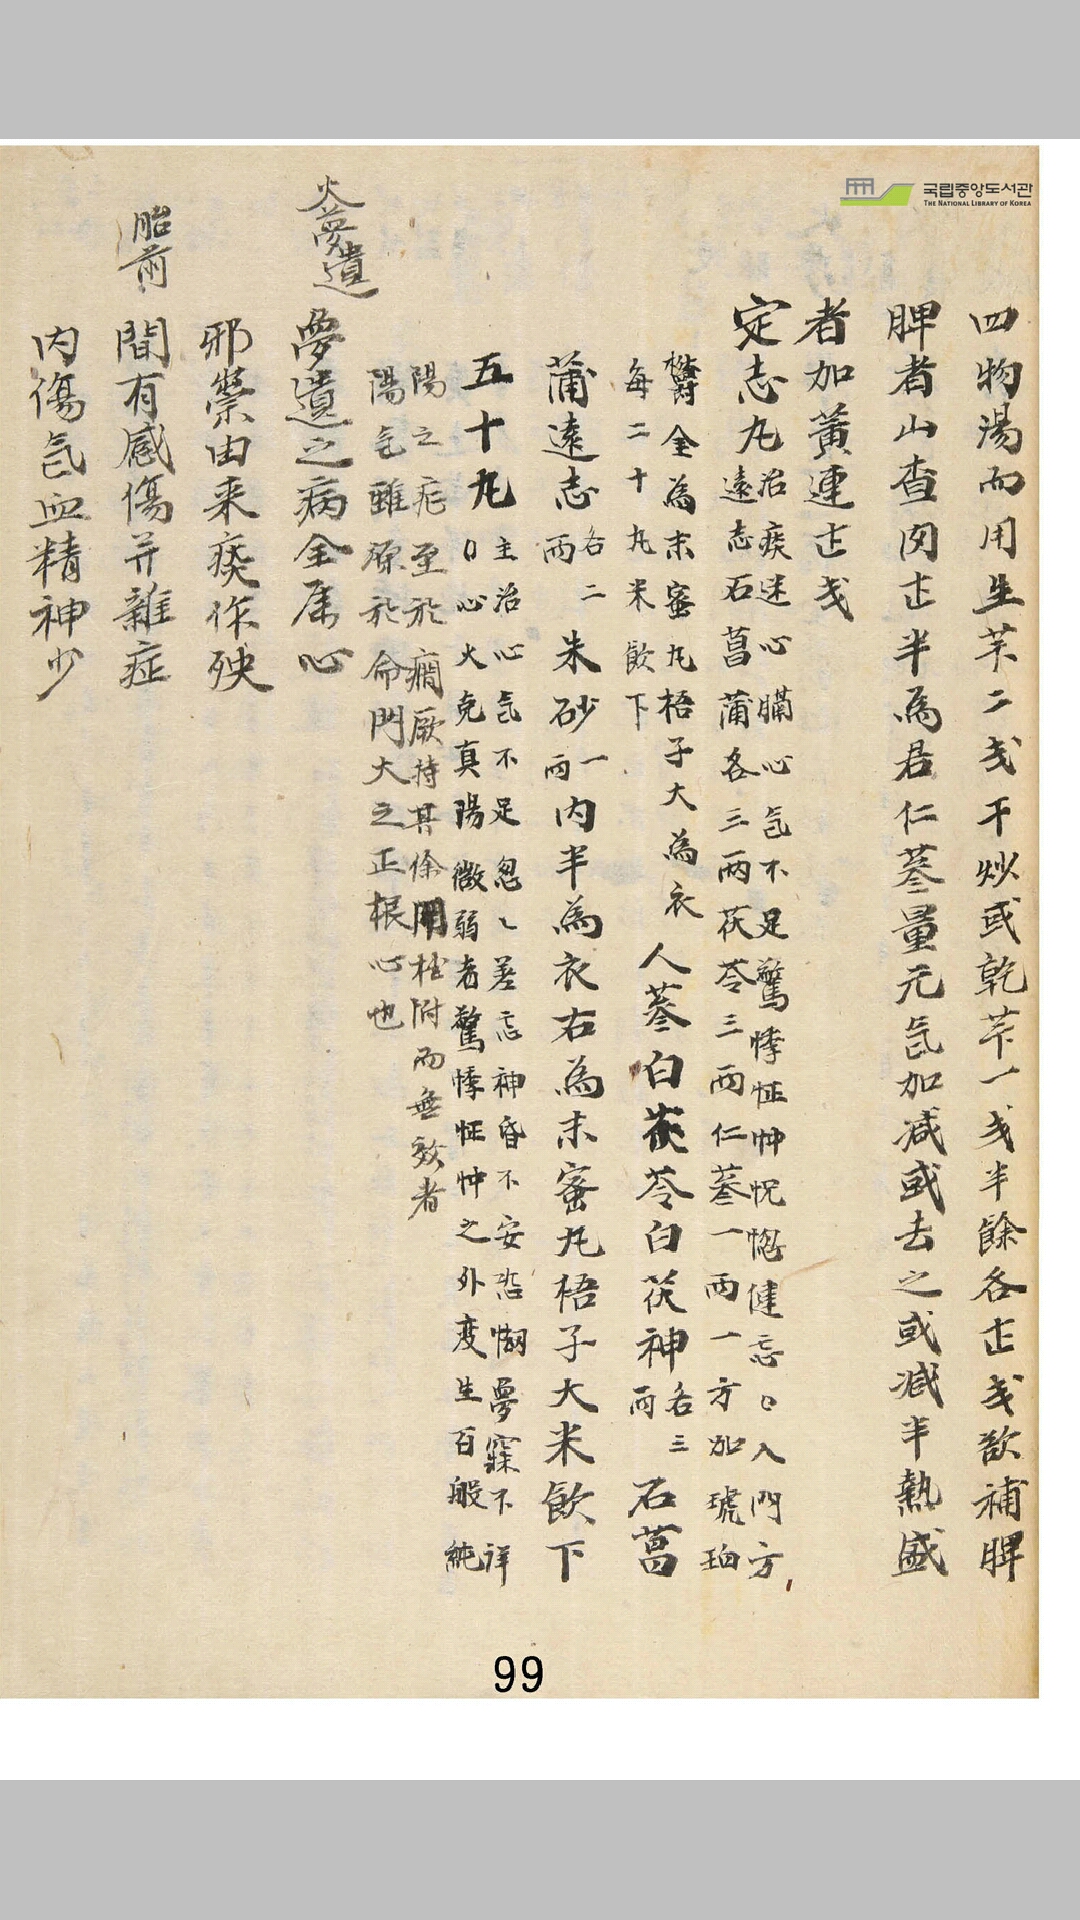 국립중앙도서관
THE NATIONAL LIBRARY OF KOREA
四物湯而用生芐二戔干炒或乾芐一戔半餘各㐀戔欲補脾
脾者山査肉㐀半爲君仁蔘量元氣加減或去之或减半熱盛
者加黃連㐀戔
定志丸
治痰迷心膈心氣不足驚悸怔忡怳惚健忘入門方
遠志石菖蒲各三兩茯苓三兩仁蔘一兩一方加琥珀
欝金為末蜜丸梧子大為衣
每二十丸米飮下
人蔘白茯苓白茯神各三兩石菖
蒲遠志各二兩朱砂一兩内半為衣右為末蜜丸梧子大米飮下
五十丸
主治心氣不足忽〻差忘神昏不安恐怖夢寐不祥
心火克真陽微弱者驚悸怔忡之外变生百般純
陽之疟至於癎厥持其徐用桂附而無效者
陽气雖源於命門大之正根心也
火夢遺
夢遺之病全屬心
邪祟由来痰作殃
胎前
間有感傷并雜症
内傷氣血精神少
99